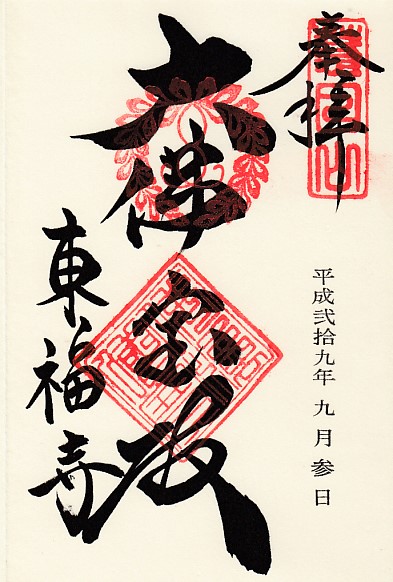 奉拝
大佛宝殿
平成弐拾九年 九月参日
東福寺